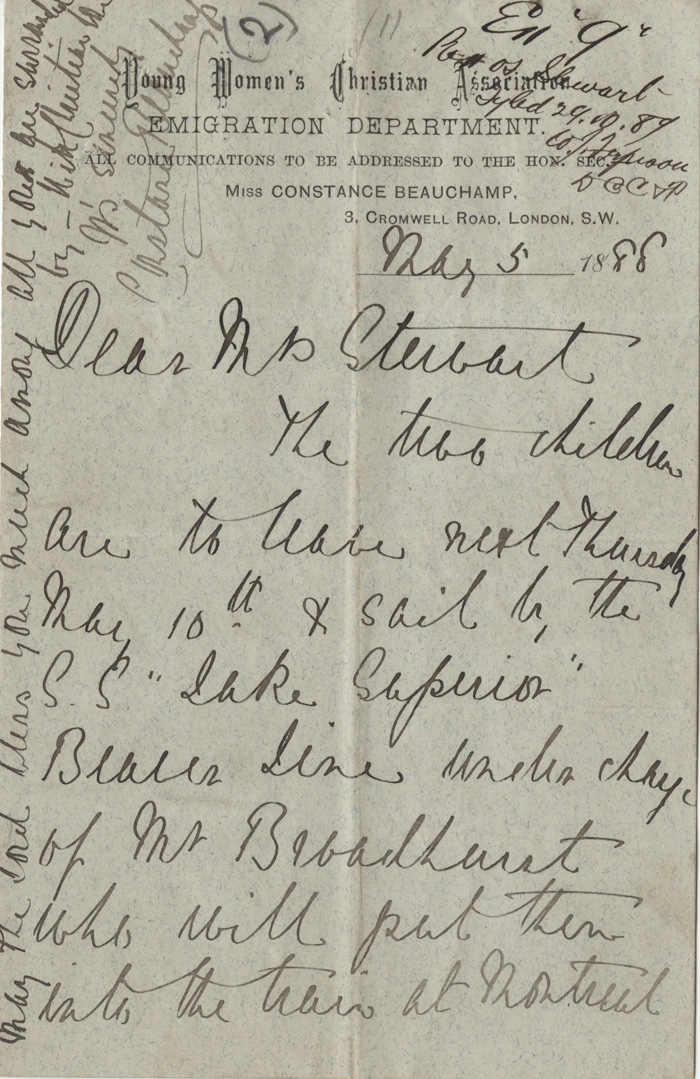 (2)
Ex "9"
Stewart
Filed 29.10.89
D CC VP
Young Women's Christian Association
EMIGRATION DEPARTMENT.
ALL COMMUNICATIONS TO BE ADDRESSED TO THE HON. SEC.
MISS CONSTANCE BEAUCHAMP,
3, CROMWELL ROAD, LONDON, S.W.
May 5 1888
Dear Mrs Stewart
The two children
are to leave next Thursday
May 10th & sail by the
S.S "Lake Superior"
Beaver Line under charge
of Mr Broadhurst
who will put them
into the train at Montreal
May the Lord bless you much among all you are
by - With Christian
Yrs sincerely
Constance Beauchamp